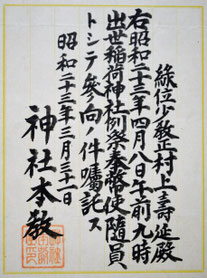 綠位少敎正村上壽延殿
右昭和二十三年四月八日午前九時
出世稲荷神社例祭奏幣使隨員
トシテ參向ノ件囑託ス
昭和二十三年三月三十一日
神社本敎